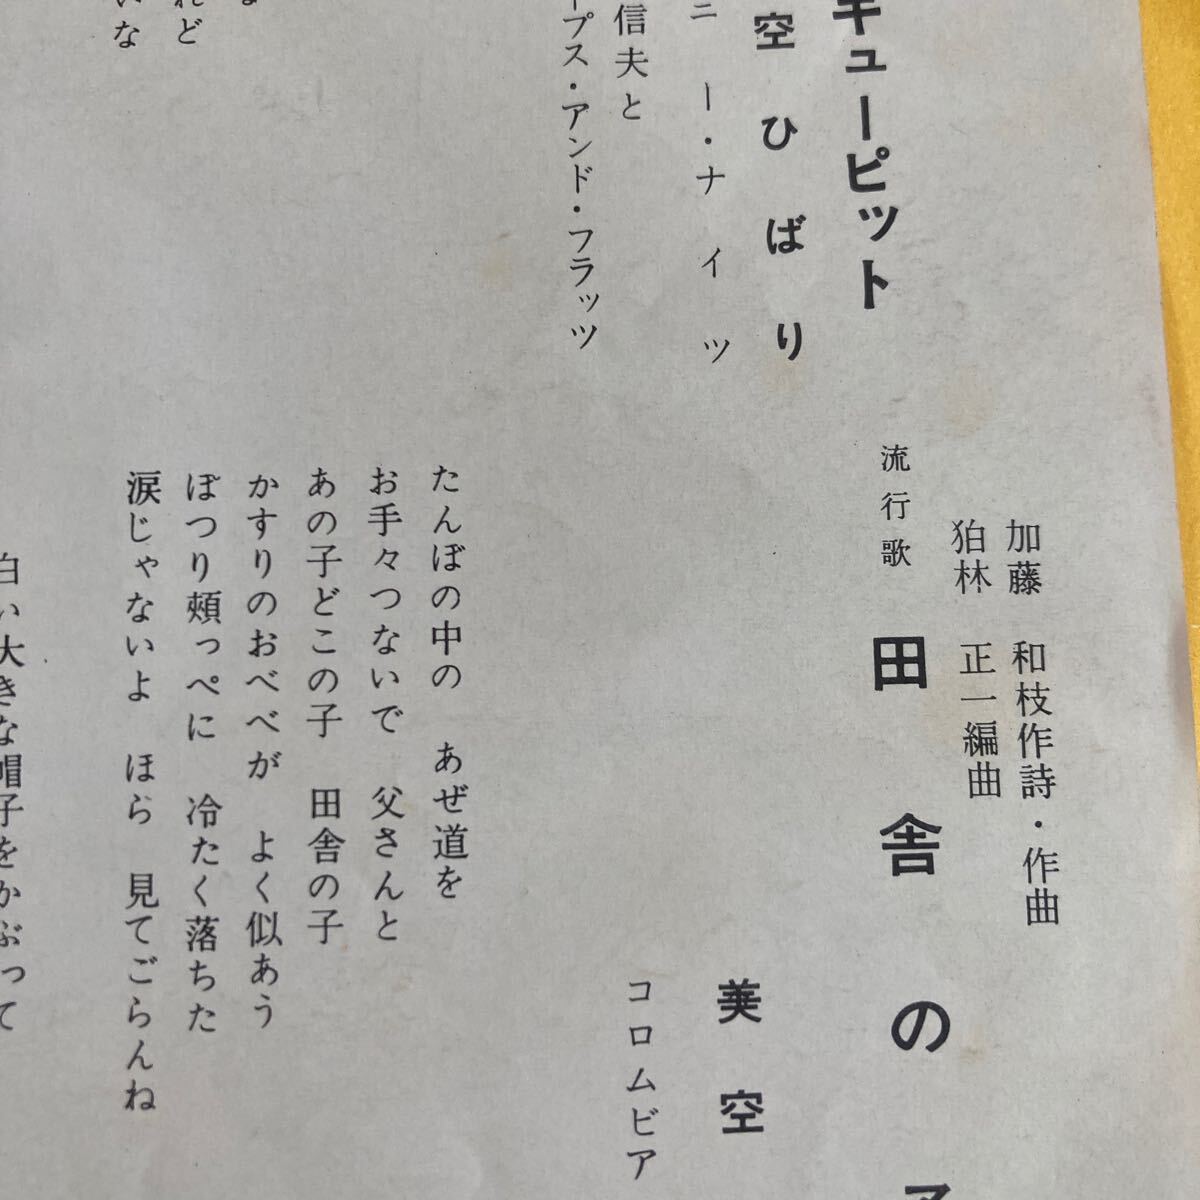 キューピット
空ひばり
ニー・ナイツ
信夫と
プス・アンド・フラッツ
れど
いな
加藤 和枝作詩・作曲
狛林 正一編曲
流行歌 田舎の子
美空
コロムビア
たんぼの中の あぜ道を
お手々つないで 父さんと
あの子どこの子 田舎の子
かすりのおべべが よく似あう
ぽつり頬っぺに 冷たく落ちた
涙じゃないよ ほら 見てごらんね
白い大きな帽子をかぶって